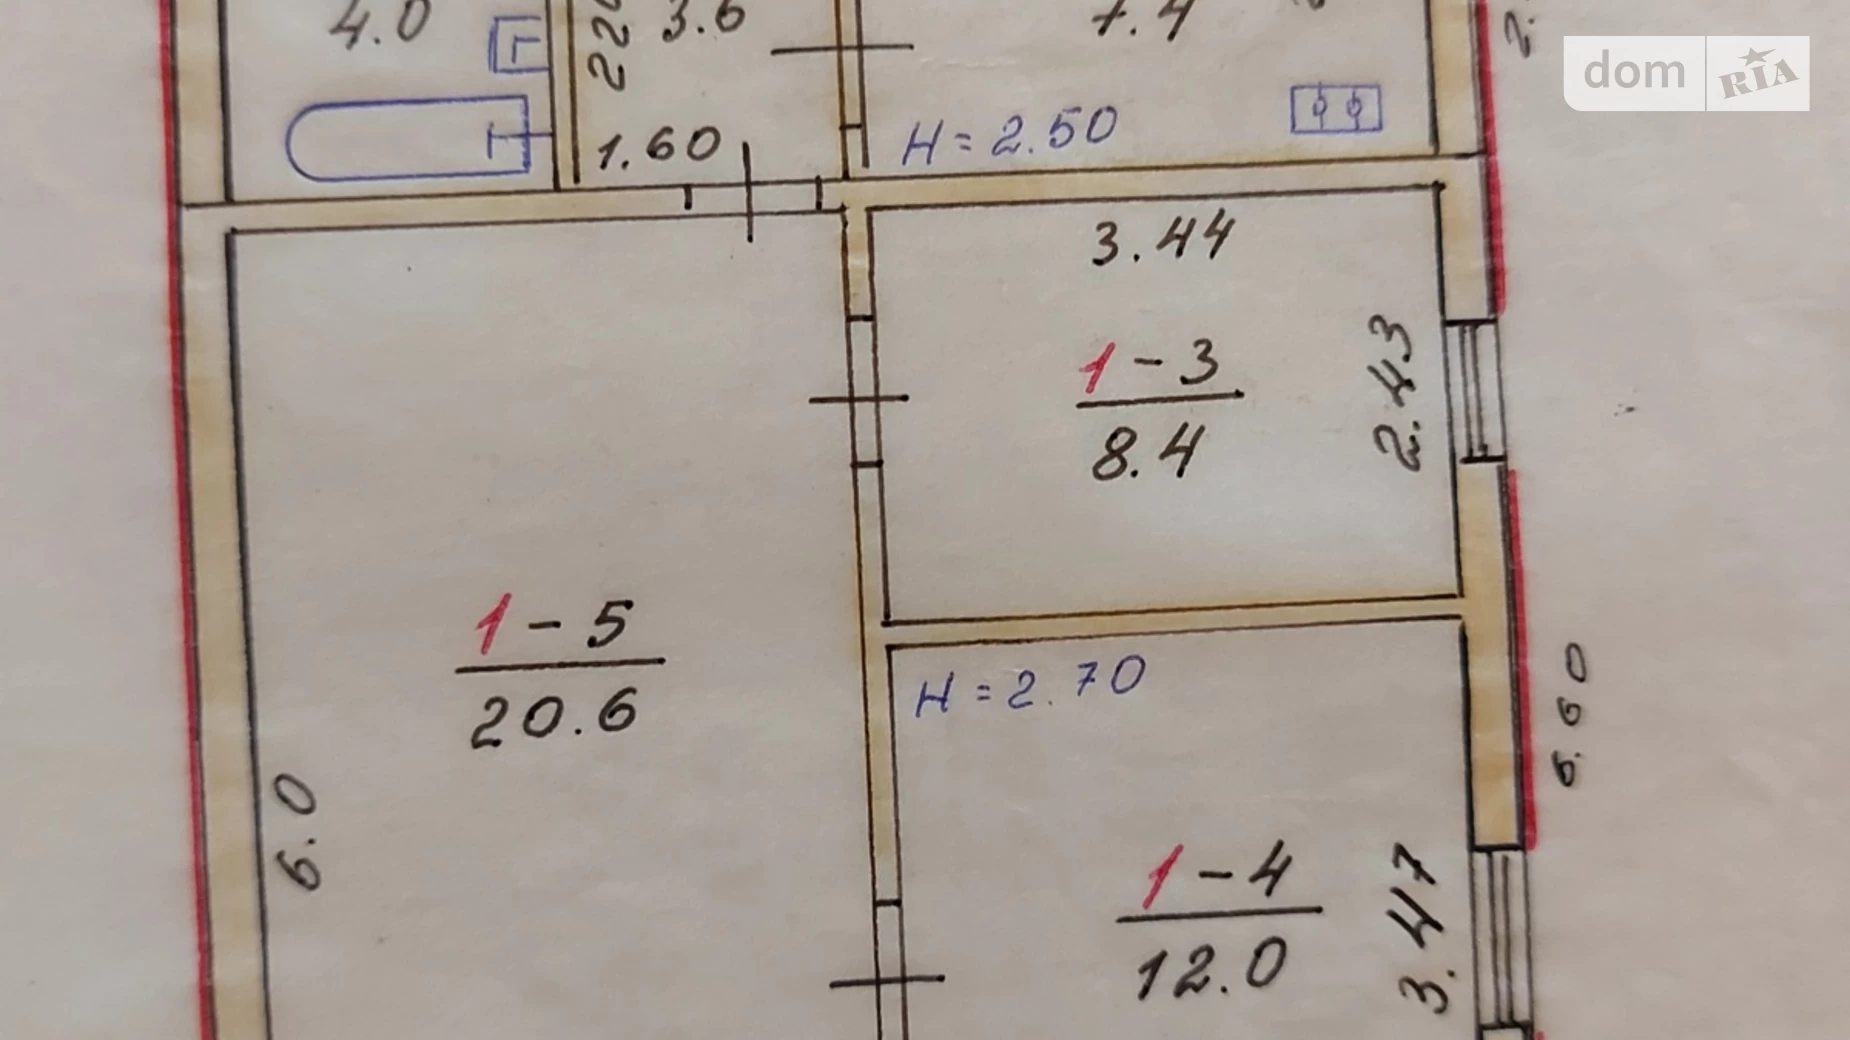 4.0
3.6
7.4
1.60
H = 2.50
dom RIA
3.44
1 - 3
8.4
2.43
1 - 5
20.6
H = 2.70
6.0
1 - 4
12.0
3.47